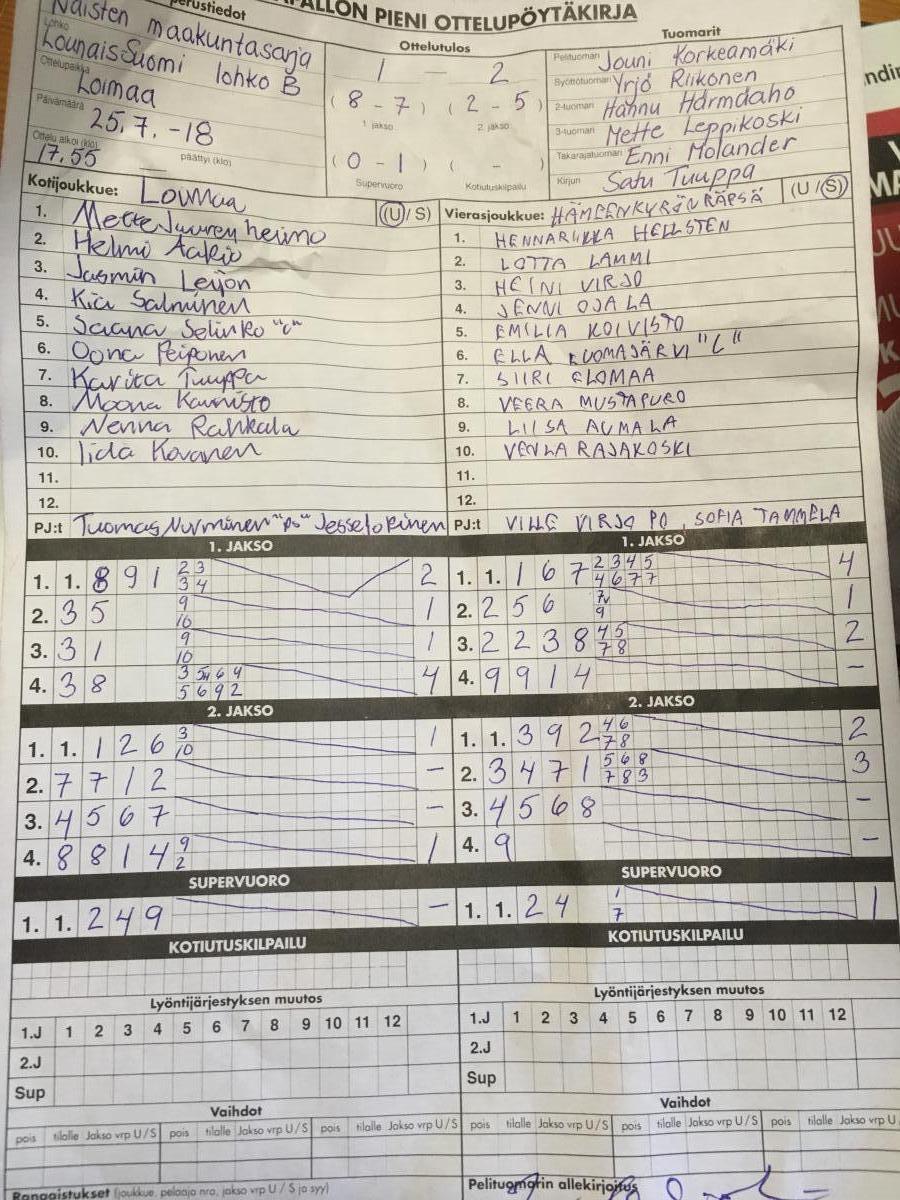 PALLON PIENI OTTELUPÖYTÄKIRJA
perustiedot
Lohko
Naisten maakuntasarja
LounaisSuomi lohko B
Ottelupaikka
Loimaa
Päivämäärä
25.7.-18
Ottelu alkoi (klo)
17.55
päättyi (klo)
Ottelutulos
1 — 2
(8 - 7) (2 - 5)
1. jakso 2. jakso
(0 - 1) ( - )
Supervuoro Kotiutuskilpailu
Tuomarit
Pelituomari Jouni Korkeamäki
Syöttötuomari Yrjö Riikonen
2-tuomari Hannu
3-tuomari Mette Leppikoski
Takarajatuomari Enni Molander
Kirjuri Satu Tuuppa
Kotijoukkue: Loimaa (U / S)
1. Mette Juurenheimo
2. Helmi
3. Jasmin Leijon
4. Kia Salminen
5. Saana Selinko "c"
6. Oona Peiponen
7. Karita Tuuppa
8. Moona Kaunisto
9. Nenna Rahkala
10. Iida Kovanen
11.
12.
PJ:t Tuomas Nurminen "ps"
Vierasjoukkue: HÄMEENKYRÖN RÄPSÄ (U / S)
1. HENNARIIKKA HELLSTEN
2. LOTTA LAMMI
3. HEINI VIRJO
4. JENNI OJALA
5. EMILIA KOIVISTO
6. ELLA LUOMAJÄRVI "C"
7. SIIRI ELOMAA
8. VEERA MUSTAPURO
9. LIISA AUMALA
10. VENLA RAJAKOSKI
11.
12.
PJ:t VILLE VIRJO PO, SOFIA TAMMELA
1. JAKSO
1. 1. 8 9 1 2 3 3 4 2
2. 3 5 9 10 1
3. 3 1 9 10 1
4. 3 8 4
1. JAKSO
1. 1. 1 6 7 2 3 4 5 4 6 7 7 4
2. 2 5 6 9 1
3. 2 2 3 8 4 5 7 8 2
4. 9 9 1 4 –
2. JAKSO
1. 1. 1 2 6 3 10 1
2. 7 7 1 2 –
3. 4 5 6 7 –
4. 8 8 1 4 9 2 1
2. JAKSO
1. 1. 3 9 2 4 6 7 8 2
2. 3 4 7 1 5 6 8 7 8 3 3
3. 4 5 6 8 –
4. 9 –
SUPERVUORO
1. 1. 2 4 9 –
SUPERVUORO
1. 1. 2 4 1 7 1
KOTIUTUSKILPAILU
KOTIUTUSKILPAILU
Lyöntijärjestyksen muutos
1.J 1 2 3 4 5 6 7 8 9 10 11 12
2.J
Sup
Lyöntijärjestyksen muutos
1.J 1 2 3 4 5 6 7 8 9 10 11 12
2.J
Sup
Vaihdot
pois tilalle Jakso vrp U / S pois tilalle Jakso vrp U / S pois tilalle Jakso vrp U / S
Vaihdot
pois tilalle Jakso vrp U / S pois tilalle Jakso vrp U / S pois tilalle Jakso vrp U
Rangaistukset (joukkue, pelaaja nro, jakso vrp U / S ja syy)
Pelituomarin allekirjoitus